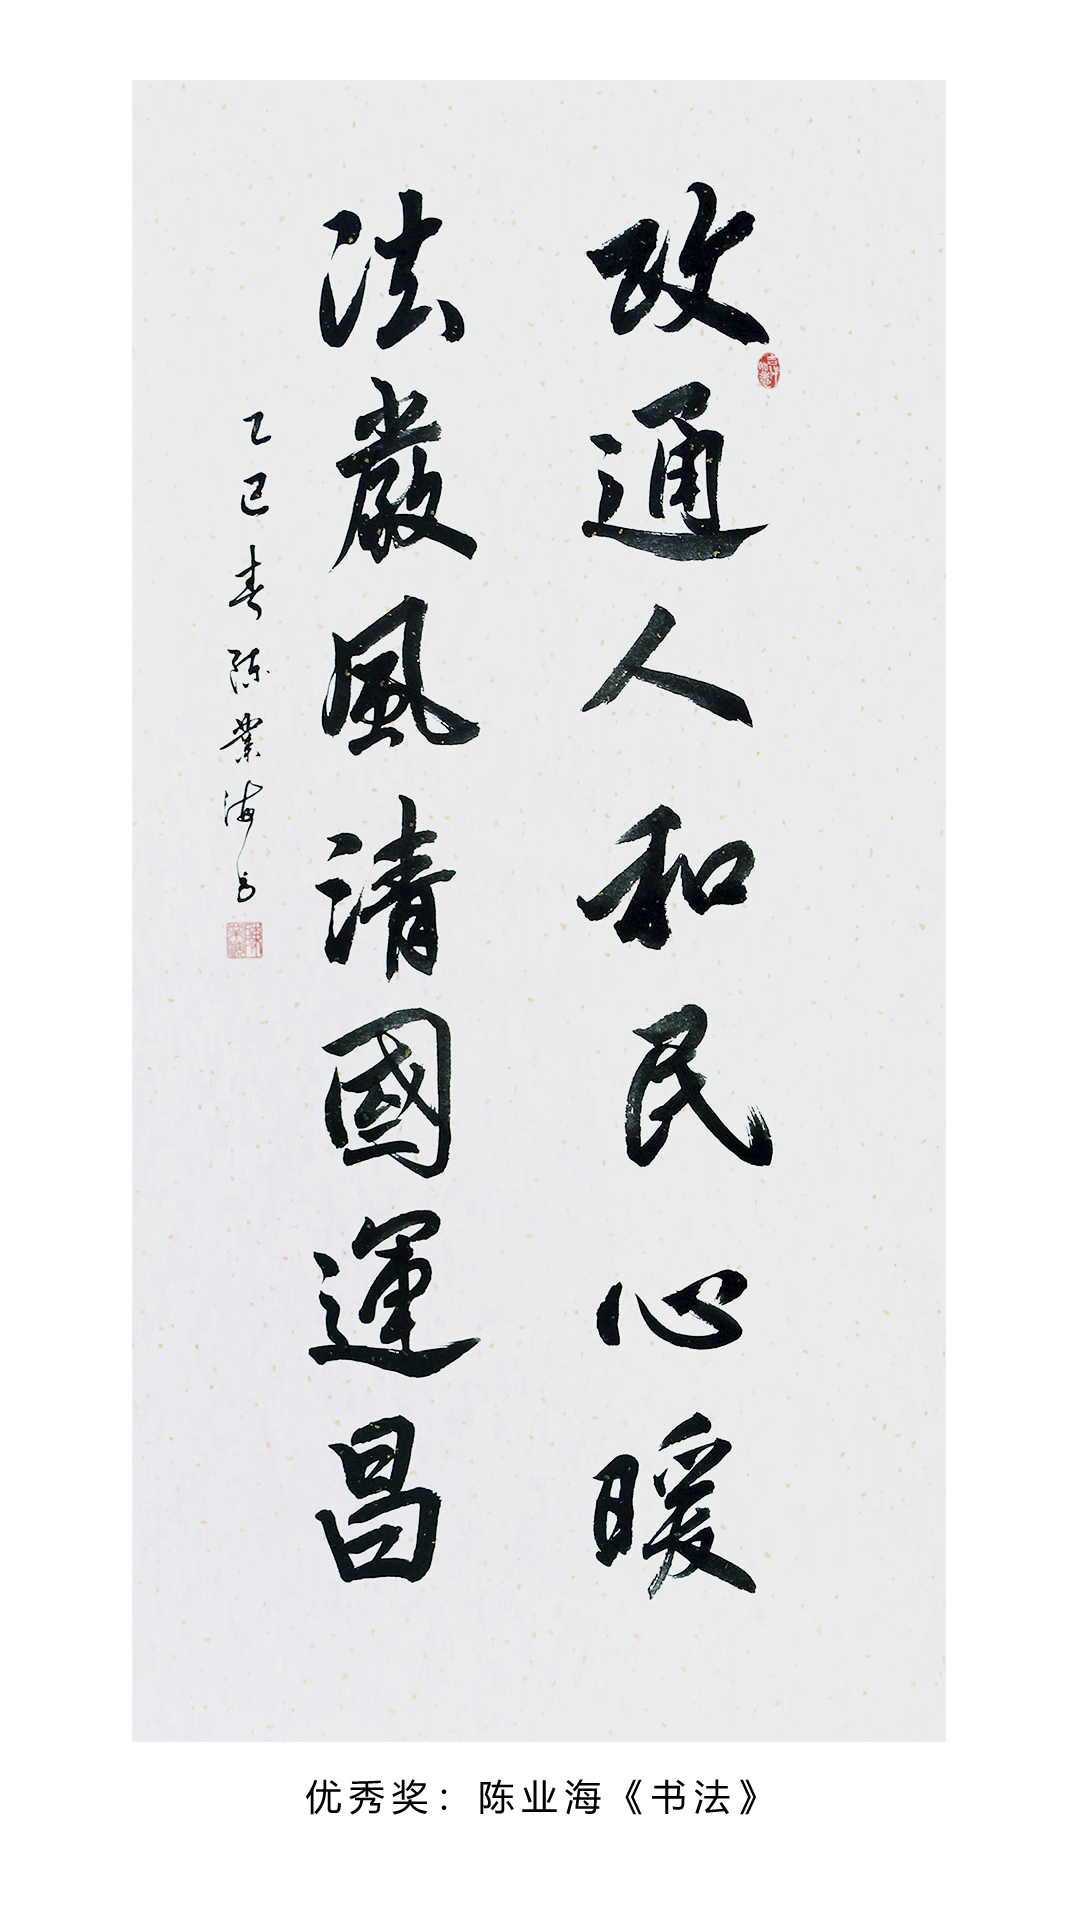 政通人和民心暖
法嚴風清國運昌
乙巳春陳業海書
优秀奖：陈业海《书法》